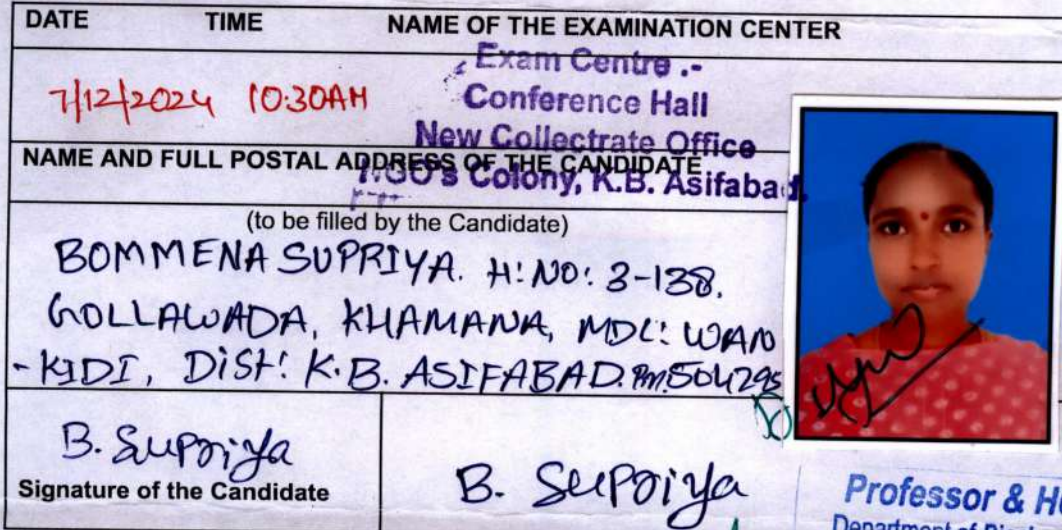 DATE TIME NAME OF THE EXAMINATION CENTER
7/12/2024 10:30AM
Exam Centre :-
Conference Hall
New Collectrate Office
NGO's Colony, K.B. Asifabad.
NAME AND FULL POSTAL ADDRESS OF THE CANDIDATE
(to be filled by the Candidate)
BOMMENA SUPRIYA. H:NO: 3-138.
GOLLAWADA, KHAMANA, MDL: WAN
-KIDI, DIST: K.B. ASIFABAD. 504295
B. Supriya
Signature of the Candidate
B. Supriya
Professor &